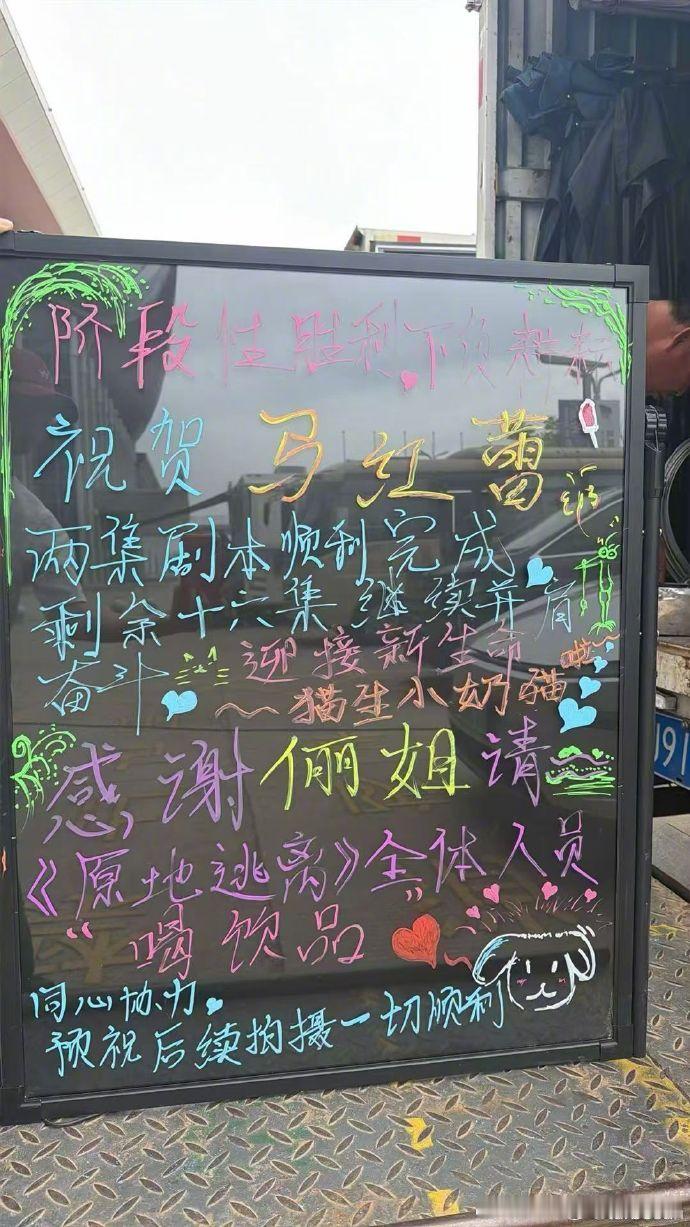 阶段性胜利,不负韶
祝贺 马红蕾
两集剧本顺利完成
剩余十六集继续并肩
奋斗 迎接新生命 啦~
~猫生小奶猫
感谢俪姐请
《原地逃离》全体人员
“喝饮品”
同心协力,
预祝后续拍摄一切顺利